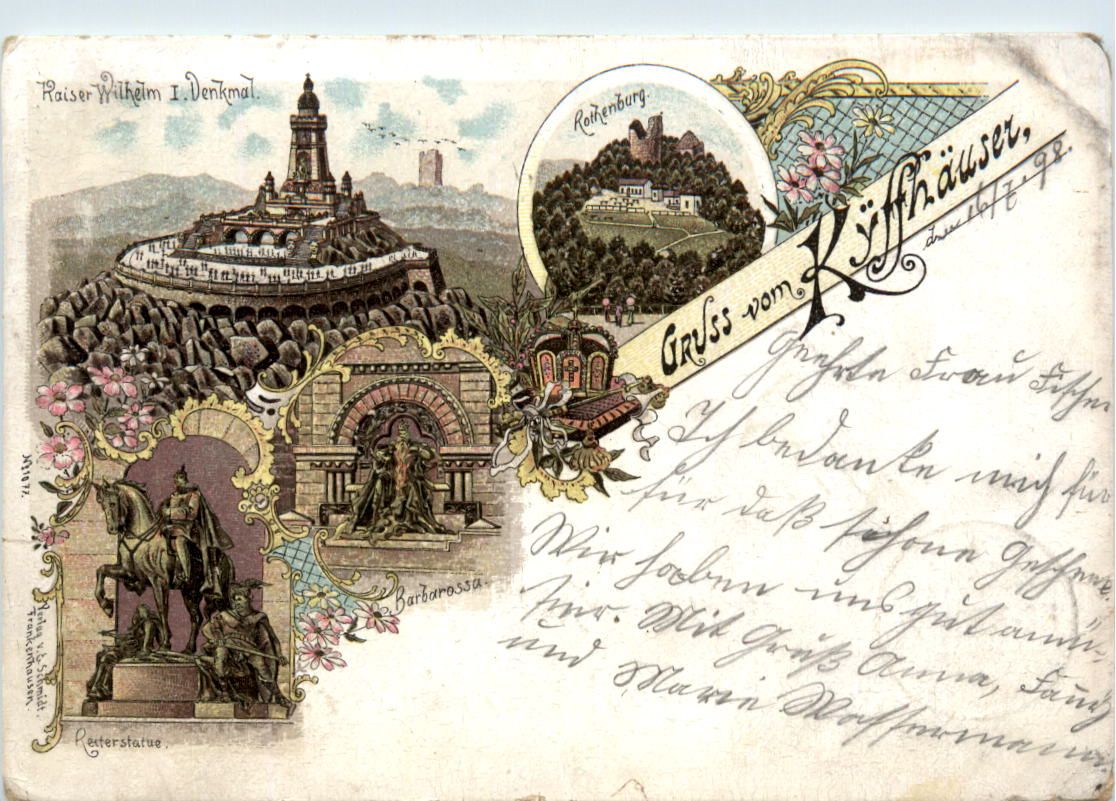 Kaiser Wilhelm I. Denkmal.
Rothenburg.
Gruss vom Kyffhäuser,
den 16/7. 98.
Geehrte Frau Fischer
Ich bedanke mich für
für daß schöne Geschenk.
Wir haben uns gut amü-
sir. Mit Gruß Anna,
und Marie Wassermann
Barbarossa.
Reiterstatue.
Verlag v.
Schmidt.
Frankenhausen.